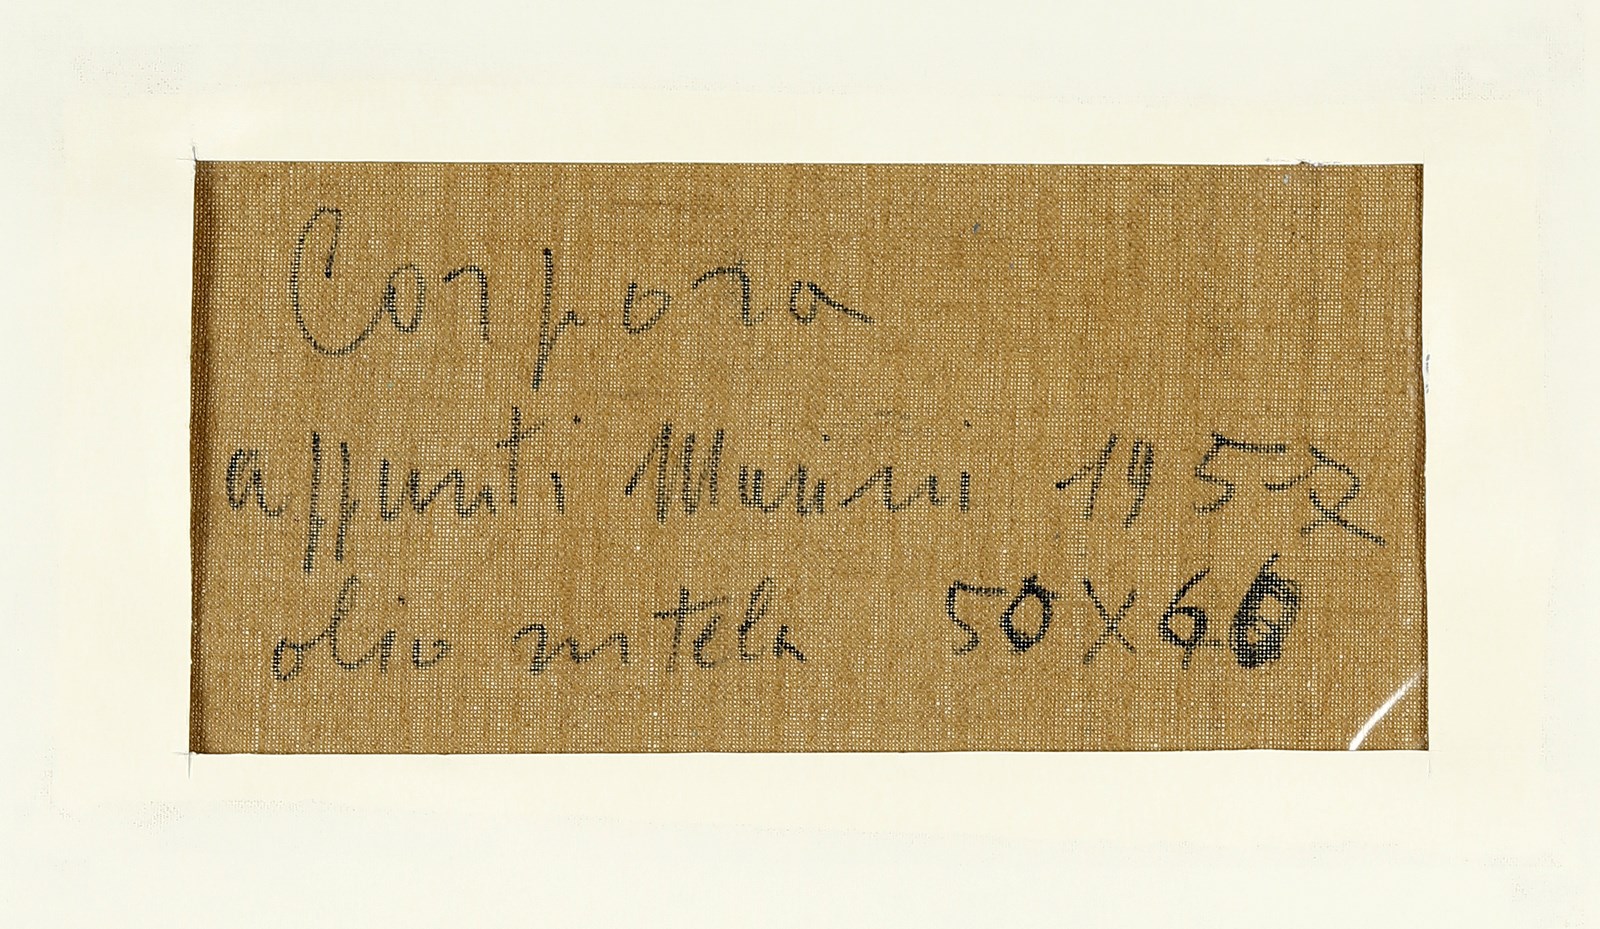 Corpora
appunti Marini 1952
olio su tela 50X60